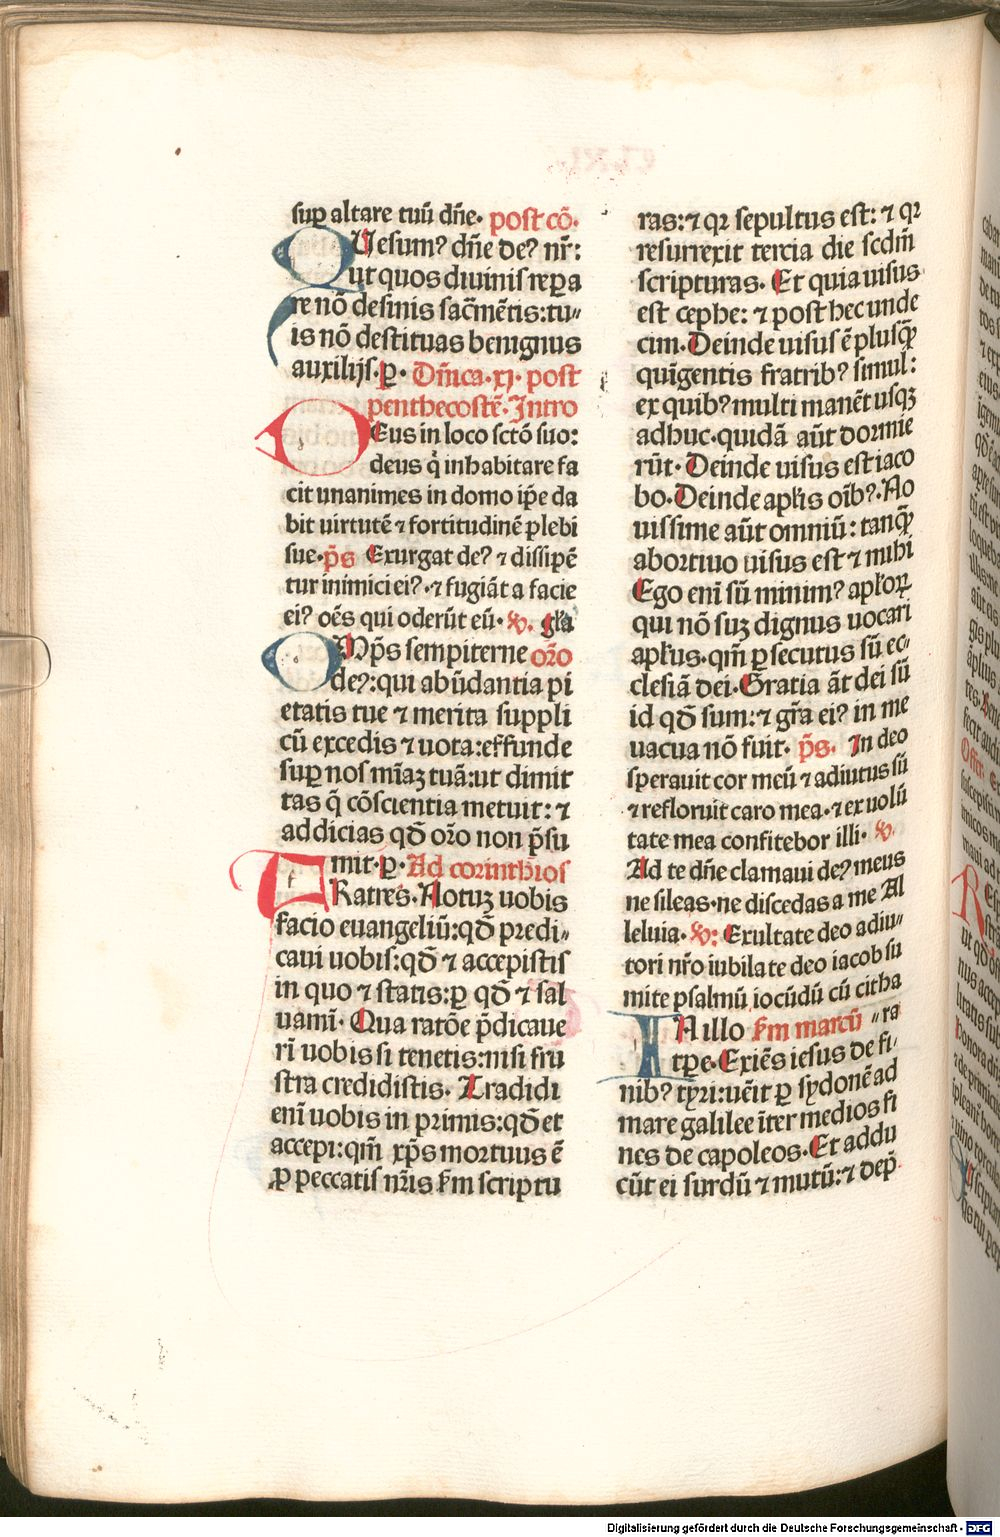 suꝑ altare tuū dn̄e. post cō.
QUesum⁹ dn̄e de⁹ nr̄:
ut quos diuinis reꝑa
re nō desinis sac̄mētis:tu〃
is nō destituas benignus
auxilijs.ꝑ. Dn̄ica.xj. post
penthecostē.Intro
DEus in loco sctō suo:
deus q̇ inhabitare fa
cit unanimes in domo ip̄e da
bit uirtutē ⁊ fortitudinē plebi
sue.p̄s Exurgat de⁹ ⁊ dissipē
tur inimici ei⁹.⁊ fugiāt a facie
ei⁹ oēs qui oderūt eū. ꝟ. gl̄a
OMp̄s sempiterne or̄o
de⁹:qui abūdantia pi
etatis tue ⁊ merita suppli
cū excedis ⁊ uota:effunde
suꝑ nos mīaꝫ tuā:ut dimit
tas q̄ cōscientia metuit: ⁊
addicias qđ or̄o non p̄su
mit.ꝑ. Ad corinthios
FRatres. Notuꝫ uobis
facio euangeliū:qđ predi〃
caui uobis:qđ ⁊ accepistis
in quo ⁊ statis:ꝑ qđ ⁊ sal
uamī. Qua ratōe p̄dicaue
rī uobis si tenetis:nisi fru
stra credidistis. Tradidi
enī uobis in primis:qđ et
accepi:qm̄ xp̄s mortuus ē
ꝓ peccatis nr̄is ẜm scriptu
ras: ⁊ qꝛ sepultus est: ⁊ qꝛ
resurrexit tercia die scdm̄
scripturas. Et quia uisus
est cephe: ⁊ post hec unde
cim. Deinde uisus ē plusq̄ꝫ
quīgentis fratrib⁹ simul:
ex quib⁹ multi manēt usqꝫ
adhuc.quidā aūt dormie
rūt. Deinde uisus est iaco
bo. Deinde apl̄is oīb⁹. No
uissime aūt omniū: tanq̄ꝫ
abortiuo uisus est ⁊ mihi
Ego enī sū minim⁹ apl̄oꝝ
qui nō suꝫ dignus uocari
apl̄us.qm̄ ꝑsecutus sū ec〃
clesiā dei. Gratia āt dei sū
id qđ sum: ⁊ gr̄a ei⁹ in me
uacua nō fuit. p̄s. In deo
sperauit cor meū ⁊ adiutus sū
⁊ refloruit caro mea.⁊ ex uolū
tate mea confitebor illi. ꝟ.
Ad te dn̄e clamaui de⁹ meus
ne sileas.ne discedas a me Al
leluia. ꝟ: Exultate deo adiu〃
tori nr̄o iubilate deo iacob su
mite psalmū iocūdū cū citha
IN illo ẜm marcū 〃ra
tp̄e. Exiēs iesus de fi〃
nib⁹ tyri:uēit ꝑ sydonē ad
mare galilee īter medios fi
nes decapoleos. Et addu
cūt ei surdū ⁊ mutū: ⁊ dep̄
Digitalisierung gefördert durch die Deutsche Forschungsgemeinschaft - DFG